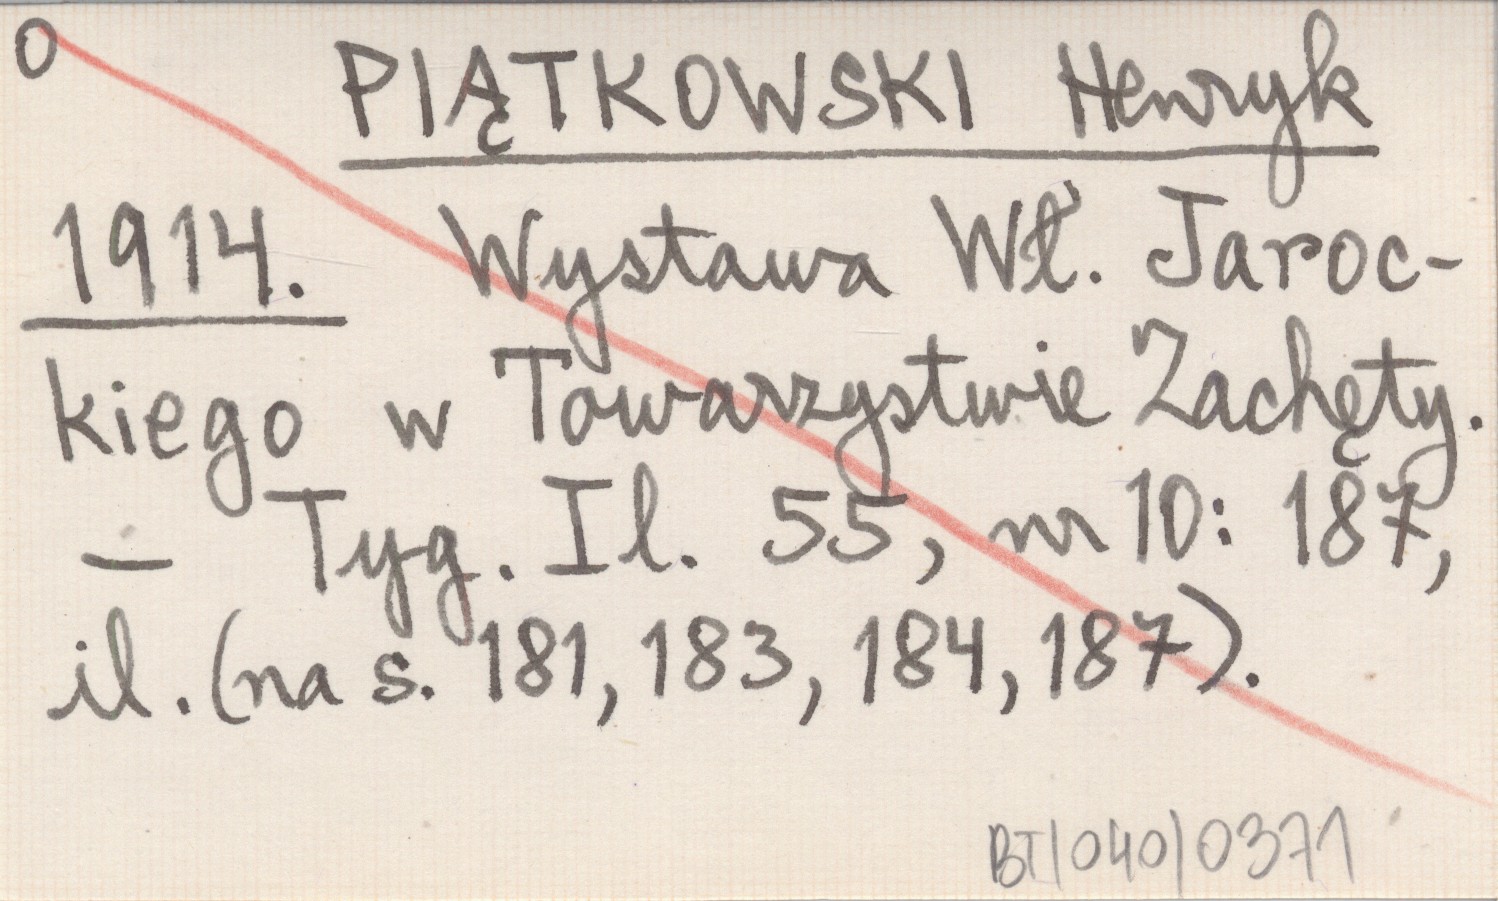 O
PIĄTKOWSKI Henryk
1914. Wystawa Wł. Jaroc-
kiego w Towarzystwie Zachęty.
— Tyg. Il. 55, nr 10: 187,
il. (na s. 181, 183, 184, 187).
BT/040/0371